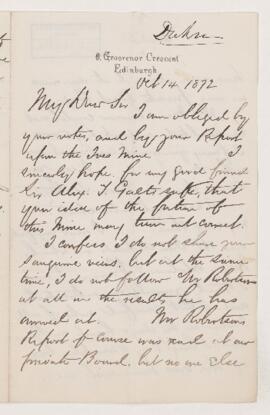 6, Grosvenor Crescent
Edinburgh
Oct 14 1872
My Dear Sir
I am obliged by
your notes, and by your Report
upon the Mine I
sincerely hope, for my good friend
Sir Alex. sake, that
your idea of the future of
this Mine may turn out correct.
I confess I do not share your
sanguine views, but at the same
time, I do not follow Mr Robertson
at all in the results he has
arrived at. Mr Robertsons
Report of course was read at our
private Board, but no one else